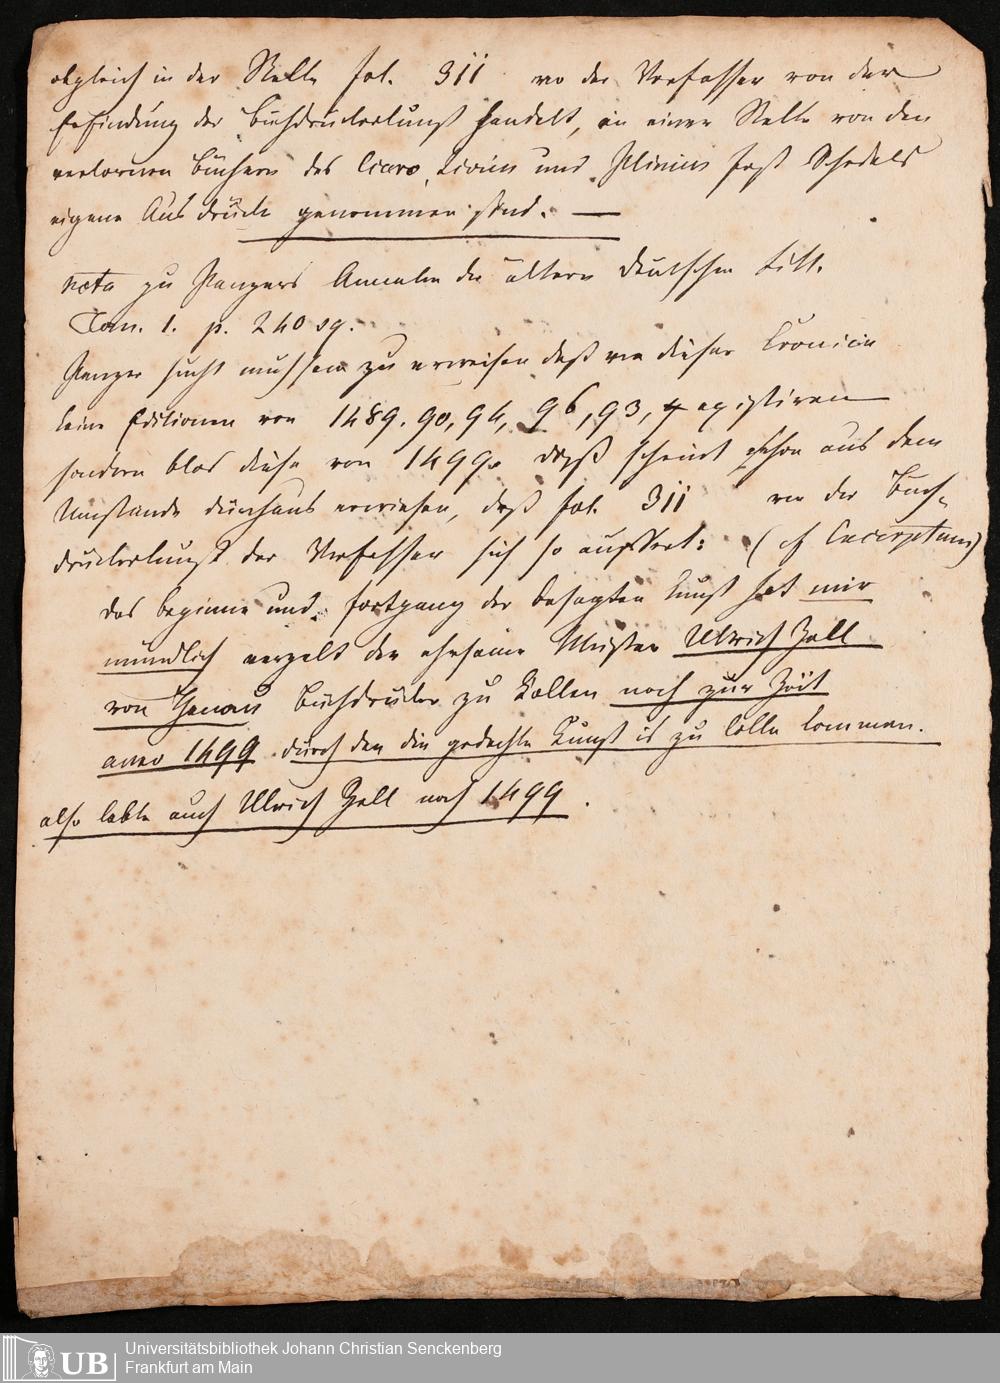 obgleich in der Stelle fol. 311 wo der Verfasser von der
Erfindung der Buchdruckerkunst handelt, an einer Stelle von den
verlornen Büchern des Cicero, Livius und Plinius fast Schedels
eigene Ausdrücke genommen sind. —
Nota zu Panzers Annalen der ältern deutschen Litt.
Tom. 1. p. 240 sq.
Panzer sucht zu erweisen daß von dieser Cronicka
keine Editionen von 1489. 90, 94, 96, 93, existiren
sondern blos diese von 1499. dieß scheint schon aus dem
Umstande durchaus erwiesen, daß fol. 311 wo der Buch-
druckerkunst der Verfasser sich so äussert: (cf Excerptum)
das beginne und fortgang der besagten kunst hat mir
mündlich verzelt der ehrsame Meister Ulrich Zell
von Hanau Buchdrucker zu Cœllen noch zur Zeit
anno 1499 durch den die gedachte Kunst is zu Cölln kommen.
also lebte auch Ulrich Zell noch 1499.
Universitätsbibliothek Johann Christian Senckenberg
Frankfurt am Main
UB